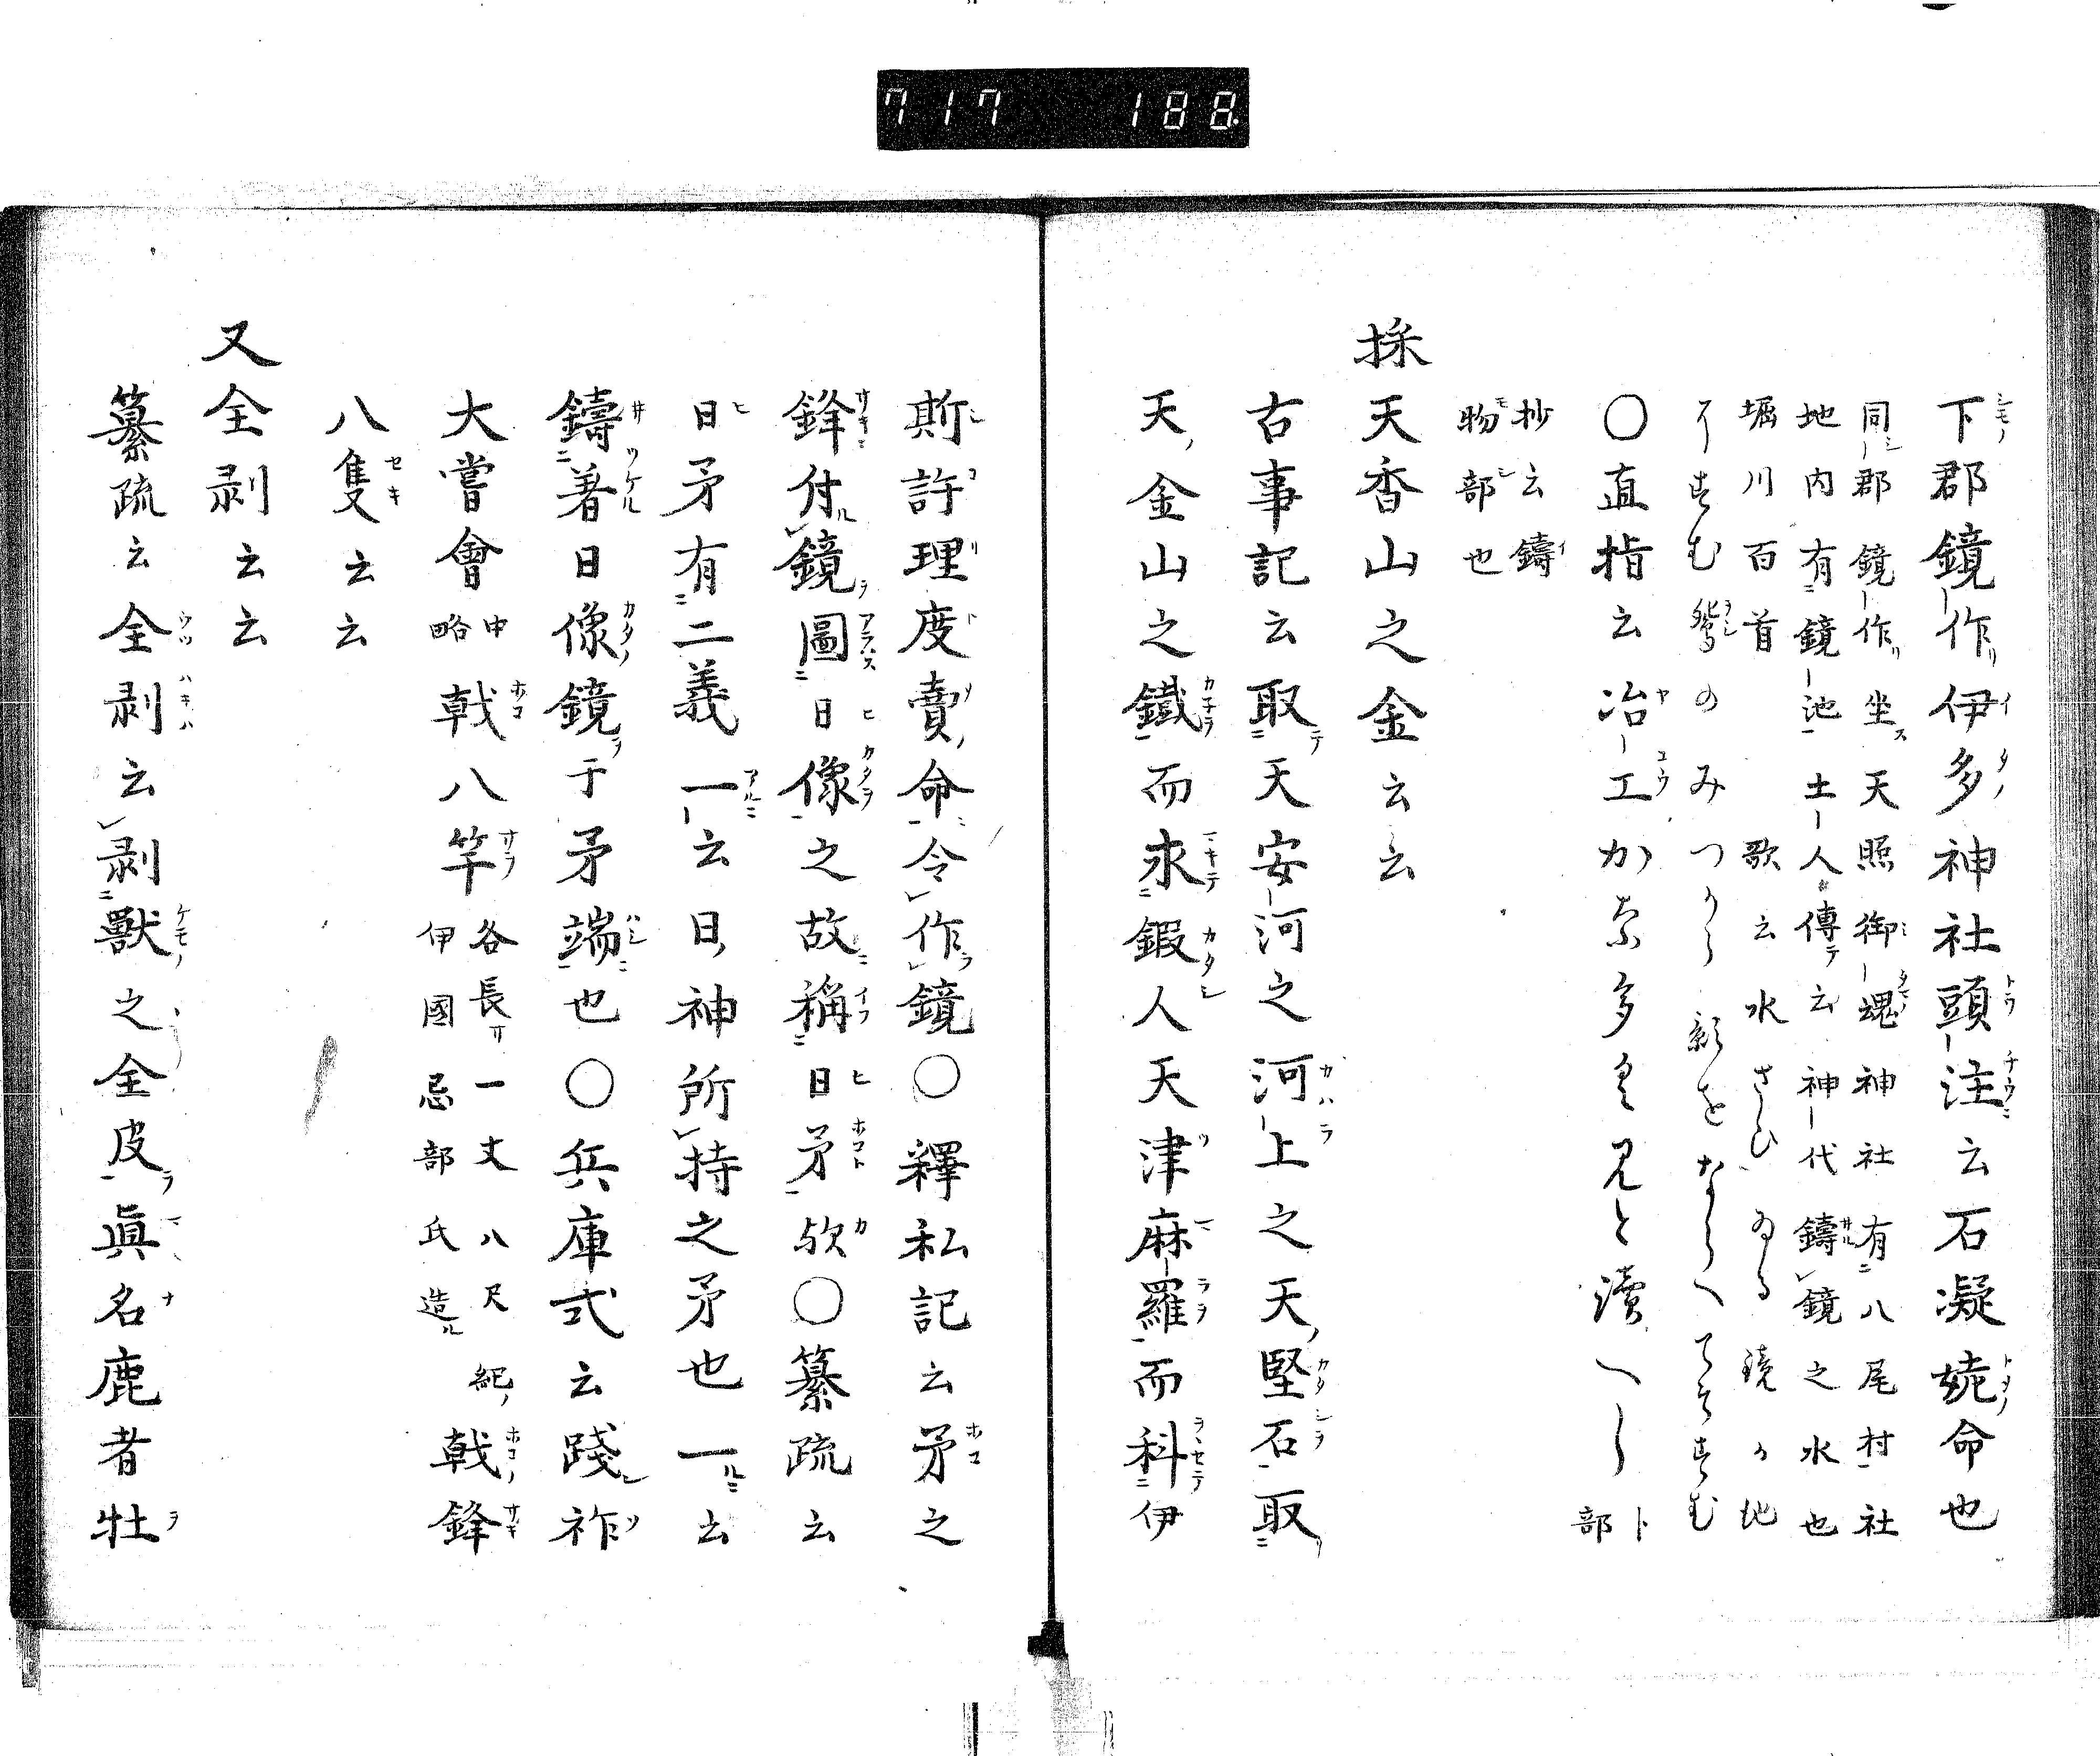 717 188
下郡鏡作伊多神社頭注云石凝姥命也
同郡鏡作坐天照御魂神社有八尾村社
地内有鏡池土人傳云神代鑄鏡之水也
堀川百首 歌云水さひゐる鏡の地
にすむ鴛のみつから影をならへてそすむ
〇直指云冶工かな多くミと讀へし卜部
抄云鑄
物部也
採天香山之金云云
古事記云取天安河之河上之天堅石取
天金山之鐵而求鍜人天津麻羅而科伊
斯許理度賣命令作鏡〇釋私記云矛之
鋒付鏡圖日像之故稱日矛歟〇纂疏云
日矛有二義一云日神所持之矛也一云
鑄著日像鏡于矛端也〇兵庫式云踐祚
大嘗會申略戟八竿各長一丈八尺紀伊國忌部氏造戟鋒
八隻云云
又全剥云云
纂疏云全剥云剥獸之全皮眞名鹿者牡